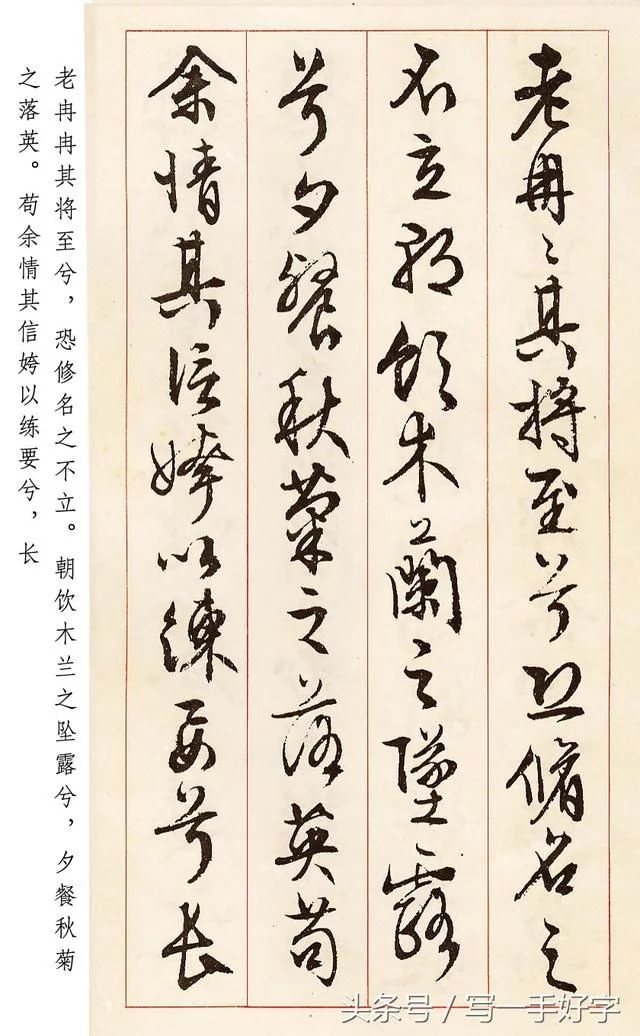 老冉〻其將至兮恐脩名之
不立朝飲木蘭之墜露
兮夕餐秋菊之落英苟
余情其信姱以練要兮長
老冉冉其将至兮，恐修名之不立。朝饮木兰之坠露兮，夕餐秋菊
之落英。苟余情其信姱以练要兮，长
头条号 / 写一手好字